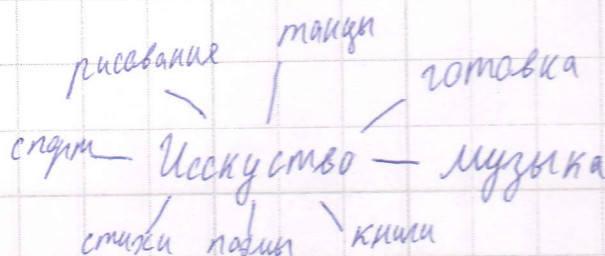 танцы
рисование
готовка
спорт
Исскуство
музыка
стихи
поэмы
книги